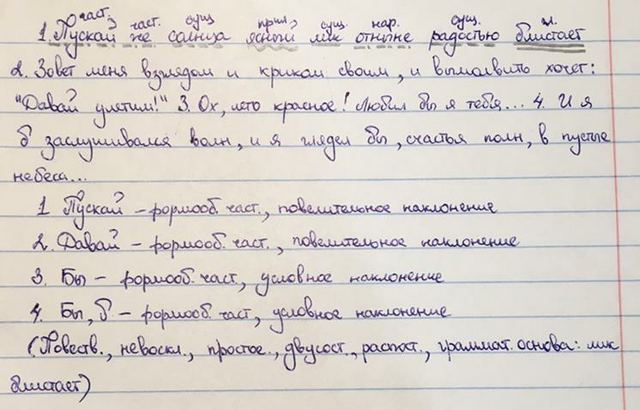 част. част. сущ. прил. сущ. нар. сущ. гл.
1. Пускай же солнца ясный лик отныне радостью блистает
2. Зовет меня взглядом и криком своим, и вымолвить хочет:
"Давай улетим!" 3. Ох, лето красное! Любил бы я тебя... 4. И я
б заслушивался волн, и я глядел бы, счастья полн, в пустые
небеса...
1 Пускай – формооб. част., повелительное наклонение
2. Давай – формооб. част., повелительное наклонение
3. Бы – формооб. част, условное наклонение
4. Бы, б – формооб. част, условное наклонение
(Повеств., невоскл., простое., двусост., распст., граммат. основа: лик
блистает)